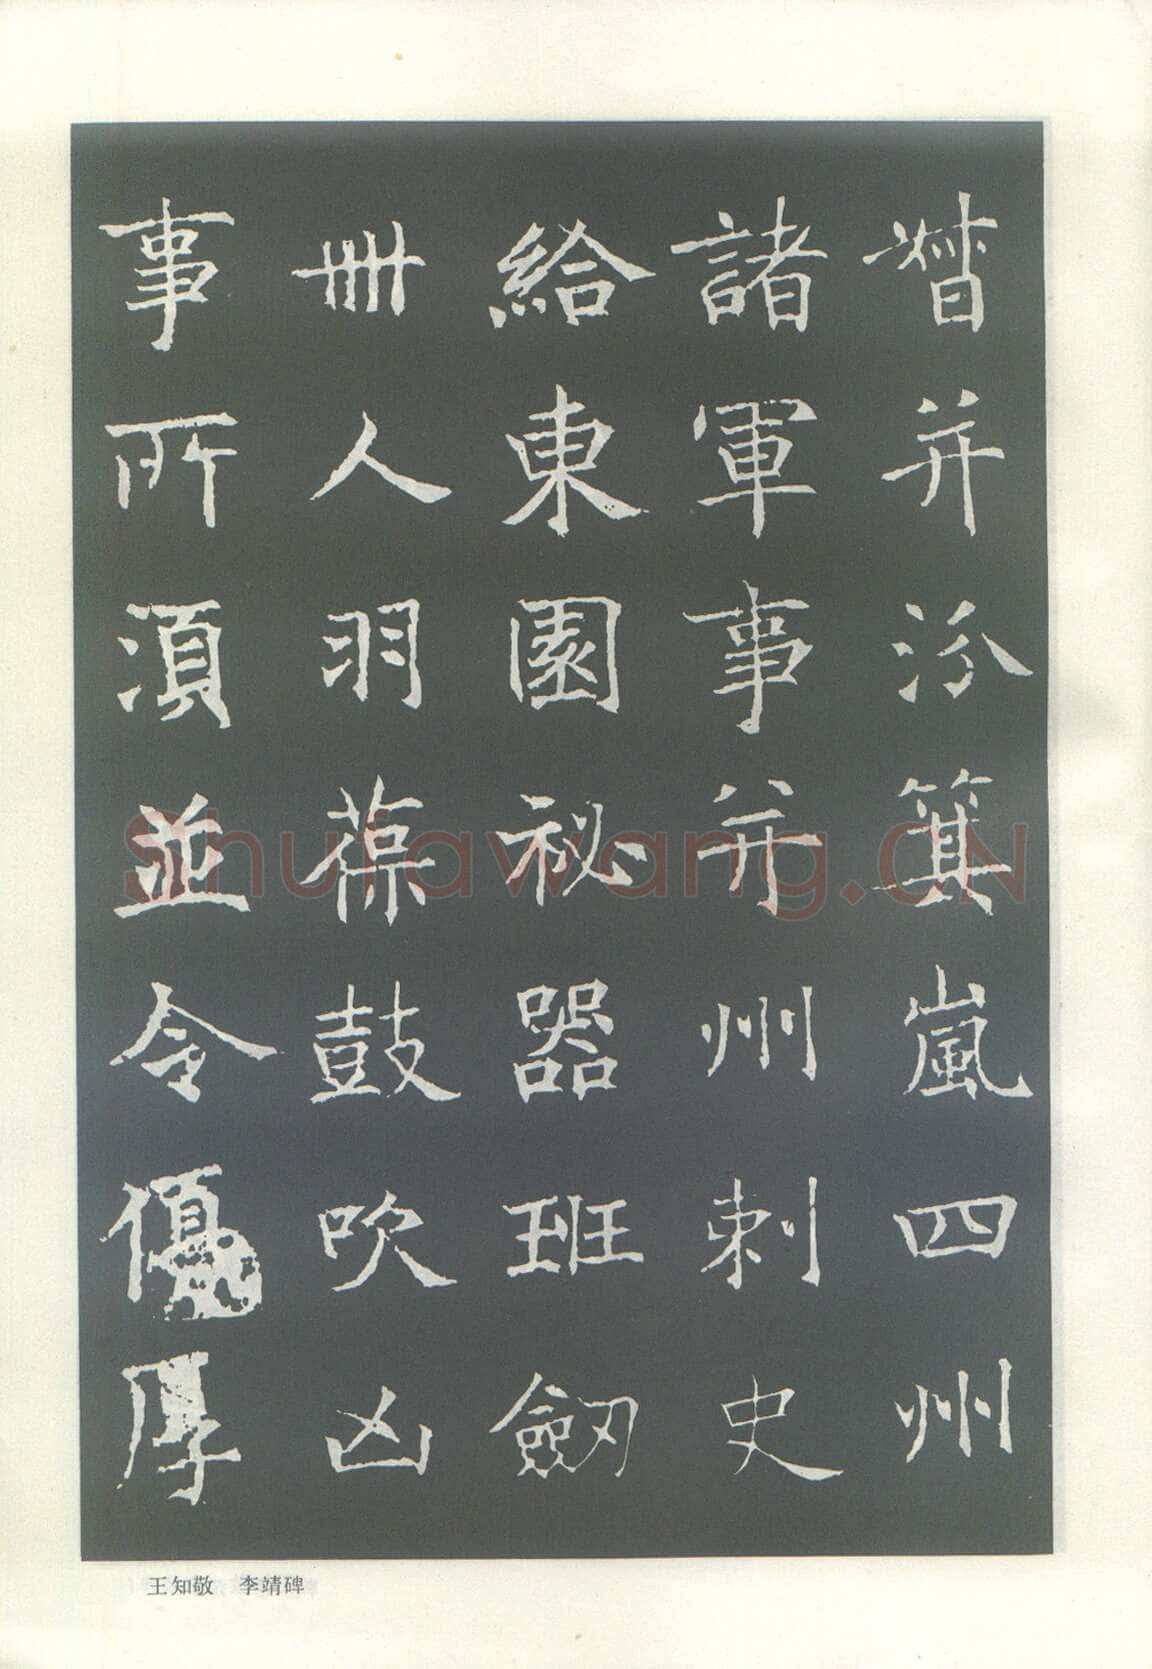 督并汾箕嵐四州
諸軍事并州刺史
給東園祕器班劒
卌人羽葆鼓吹凶
事所須並令優厚
王知敬 李靖碑
Shufawang.CN